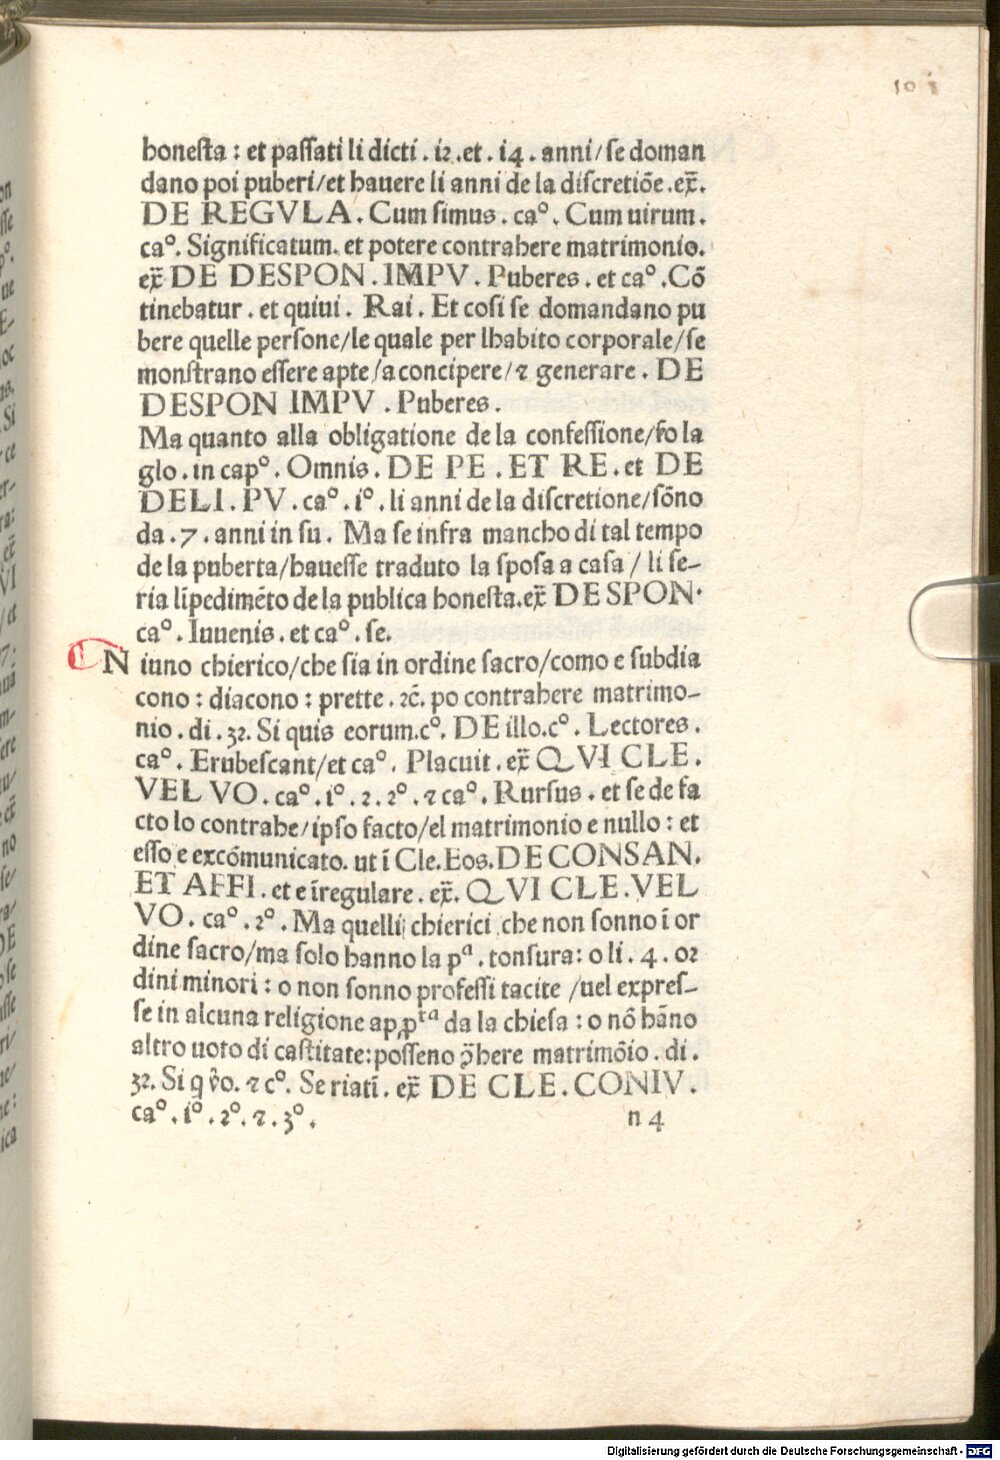 101
honesta : et passati li dicti . i2 . et . i4 . anni / se doman
dano poi puberi / et hauere li anni de la discretiõe . ex̃.
DE REGVLA . Cum simus . caº . Cum uirum .
caº . Significatum . et potere contrahere matrimonio .
ex̃ DE DESPON . IMPV . Puberes . et caº . Cõ
tinebatur . et quiui . Rai . Et cosi se domandano pu
bere quelle persone / le quale per lhabito corporale / se
monstrano essere apte / a concipere / ⁊ generare . DE
DESPON IMPV . Puberes .
Ma quanto alla obligatione de la confessione / fo la
glo . in capº . Omnis . DE PE . ET RE . et DE
DELI . PV . caº . iº . li anni de la discretione / sõno
da . 7 . anni in su . Ma se infra mancho di tal tempo
de la puberta / hauesse traduto la sposa a casa / li se-
ria lĩpedimẽto de la publica honesta . ex̃ DE SPON .
caº . Iuuenis . et caº . se .
Niuno chierico / che sia in ordine sacro / como e subdia
cono : diacono : prette . ⁊c̃ . po contrahere matrimo-
nio . di . 32 . Si quis eorum . cº . DE illo . cº . Lectores .
caº . Erubescant / et caº . Placuit . ex̃ QVI CLE .
VEL VO . caº . iº . 2 . 2º . ⁊ caº . Rursus . et se de fa
cto lo contrahe / ipso facto / el matrimonio e nullo : et
esso e excõmunicato . ut ĩ Cle . Eos . DE CONSAN .
ET AFFI . et e ĩregulare . ex̃ . QVI CLE . VEL
VO . caº . 2º . Ma quelli chierici che non sonno ĩ or
dine sacro / ma solo hanno la pª . tonsura : o li . 4 . or
dini minori : o non sonno professi tacite / uel expres-
se in alcuna religione ap̱pᵗª da la chiesa : o nõ hãno
altro uoto di castitate : posseno ꝯ̃here matrimõio . di .
32 . Si q ṽo . ⁊ cº . Se riatĩ . ex̃ DE CLE . CONIV .
caº . iº . 2º . ⁊ . 3º .
n 4
Digitalisierung gefördert durch die Deutsche Forschungsgemeinschaft - DFG